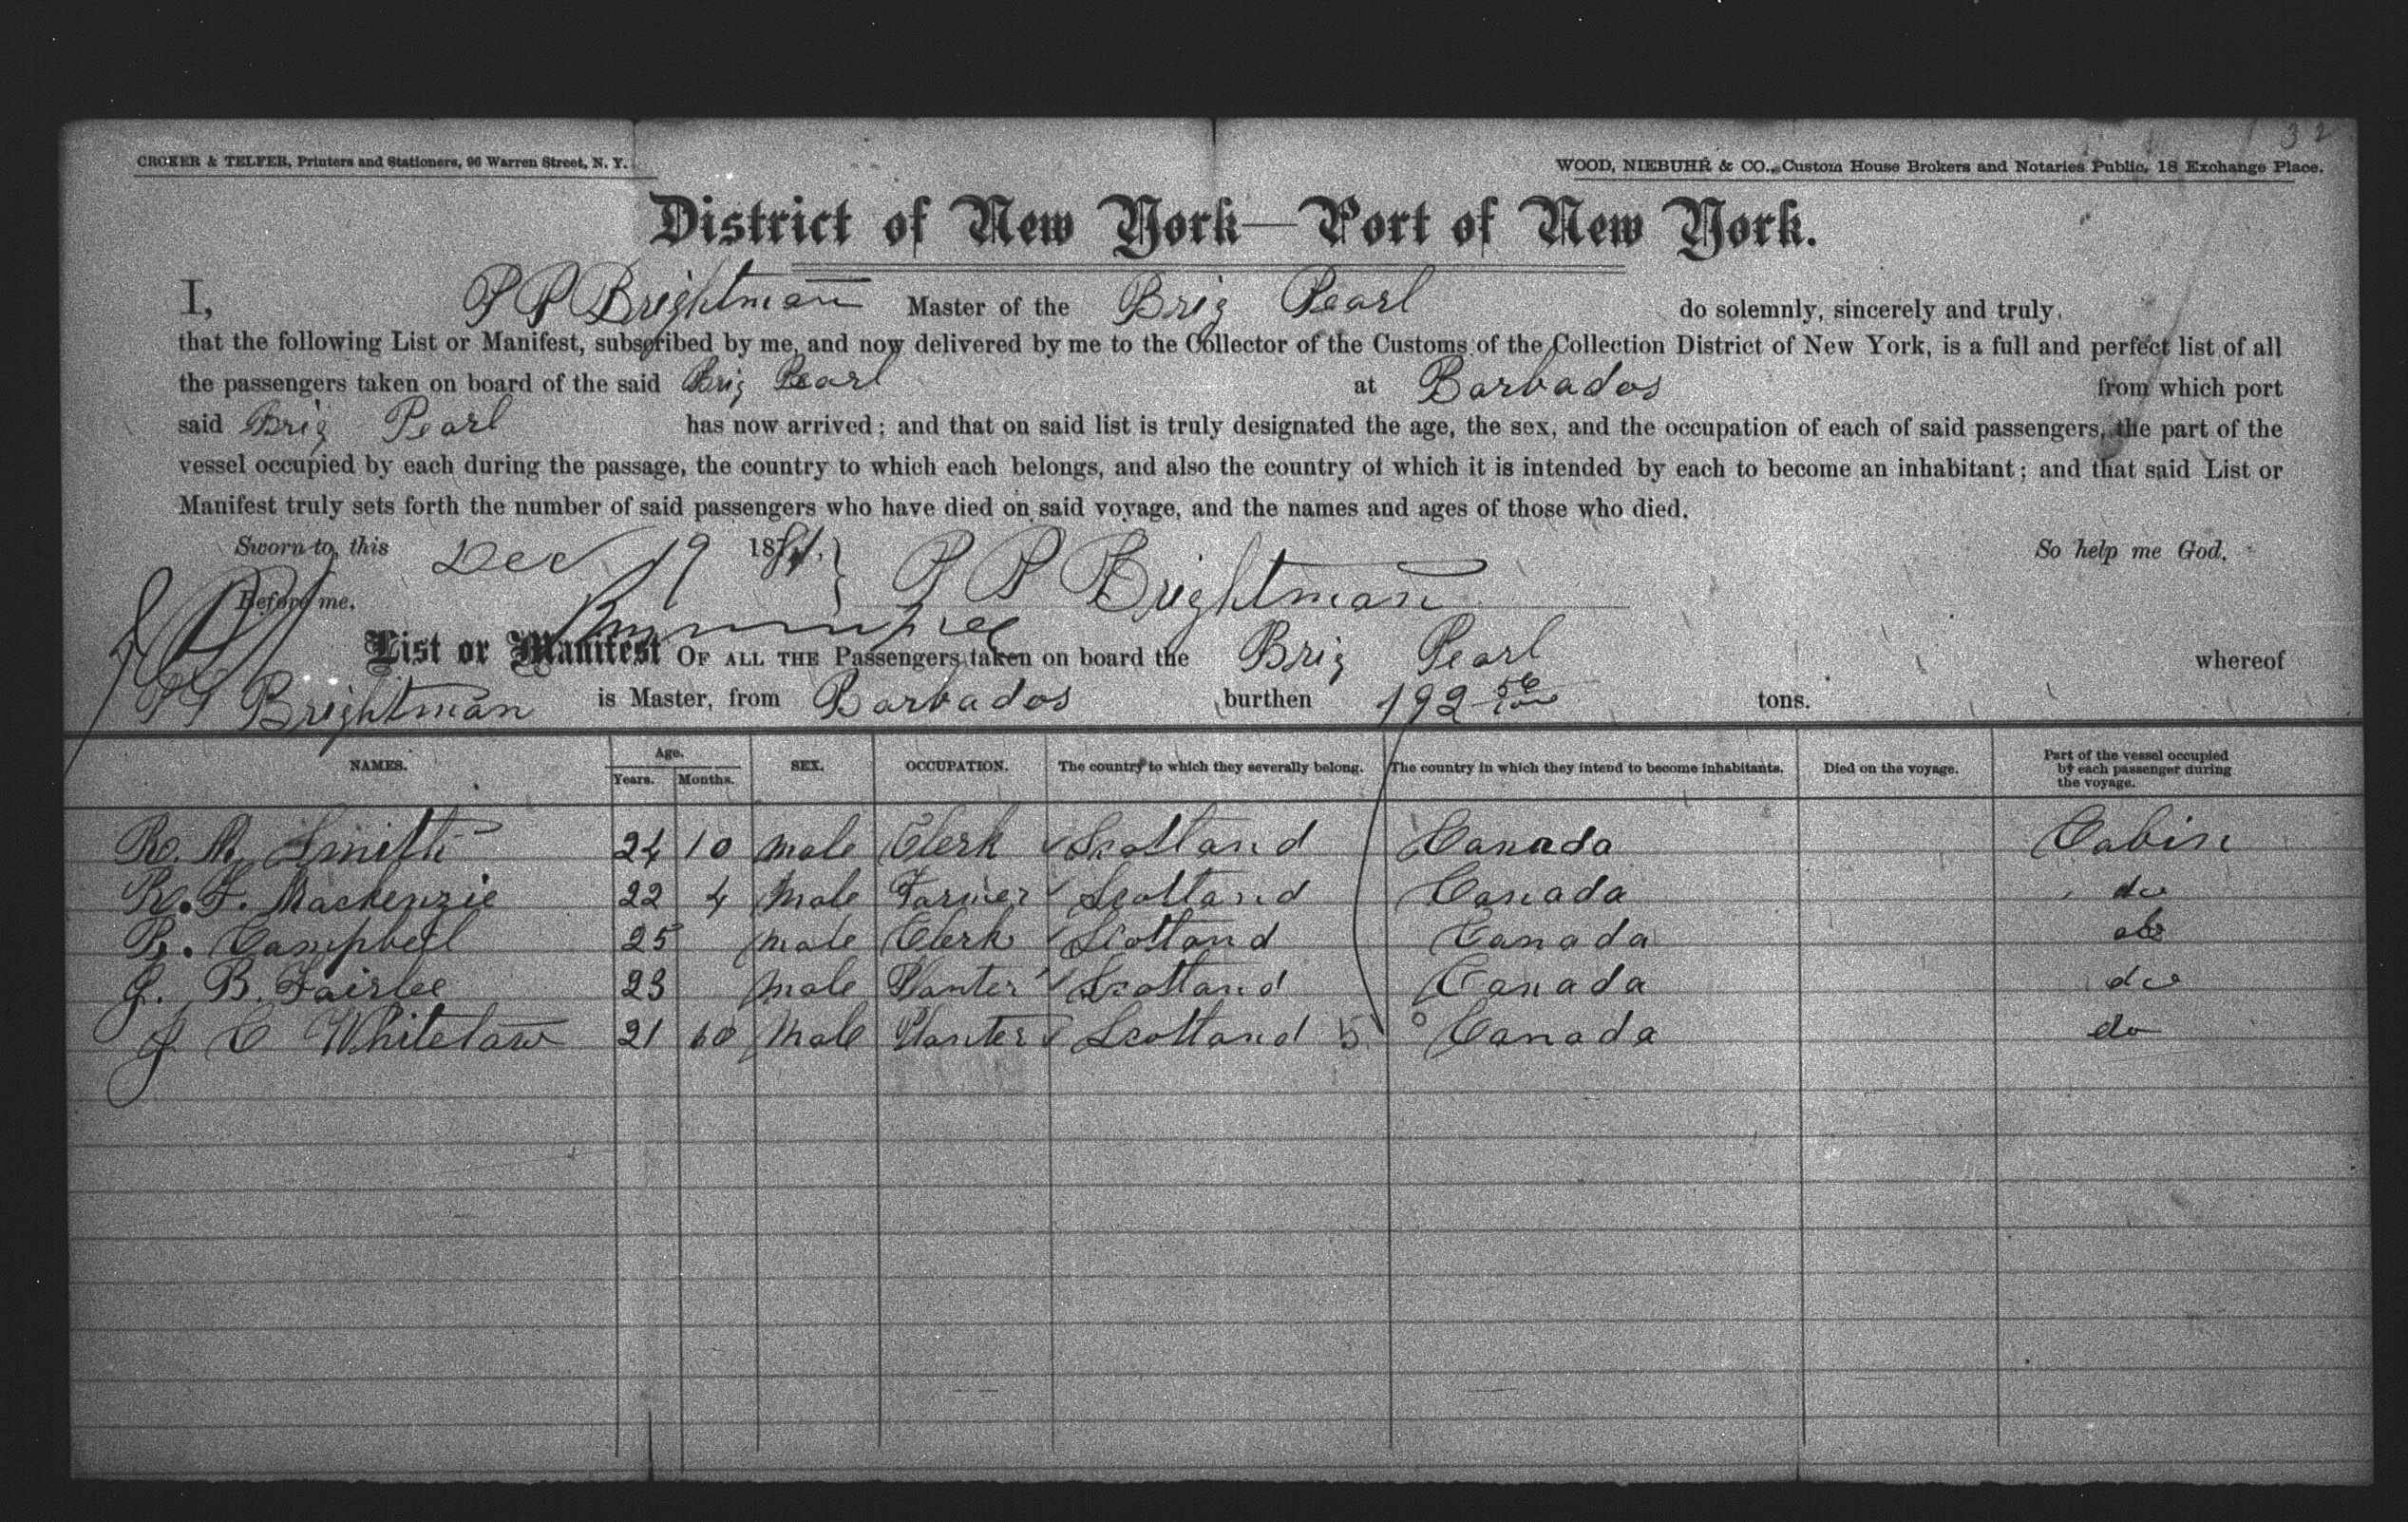 32
CROKER & TELFER, Printers and Stationers, 96 Warren Street, N. Y.
WOOD, NIEBUHR & CO., Custom House Brokers and Notaries Public, 18 Exchange Place.
District of New York—Port of New York.
I, P P Brightman Master of the Brig Pearl do solemnly, sincerely and truly,
that the following List or Manifest, subscribed by me, and now delivered by me to the Collector of the Customs of the Collection District of New York, is a full and perfect list of all
the passengers taken on board of the said Brig Pearl at Barbados from which port
said Brig Pearl has now arrived; and that on said list is truly designated the age, the sex, and the occupation of each of said passengers, the part of the
vessel occupied by each during the passage, the country to which each belongs, and also the country of which it is intended by each to become an inhabitant; and that said List or
Manifest truly sets forth the number of said passengers who have died on said voyage, and the names and ages of those who died.
Sworn to, this Dec 19 1881. P P Brightman So help me God.
Before me.
List or Manifest OF ALL THE Passengers taken on board the Brig Pearl whereof
P P Brightman is Master, from Barbados burthen 192 tons.
NAMES. Age. Years. Months. SEX. OCCUPATION. The country to which they severally belong. The country in which they intend to become inhabitants. Died on the voyage. Part of the vessel occupied by each passenger during the voyage.
R. M. Smith 24 10 Male Clerk Scotland Canada Cabin
R. F. Mackenzie 22 4 Male Farmer Scotland Canada do
R. Campbell 25 Male Clerk Scotland Canada do
J. B. Fairlee 23 Male Planter Scotland Canada do
J C Whitelaw 21 10 Male Planter Scotland 5 Canada do